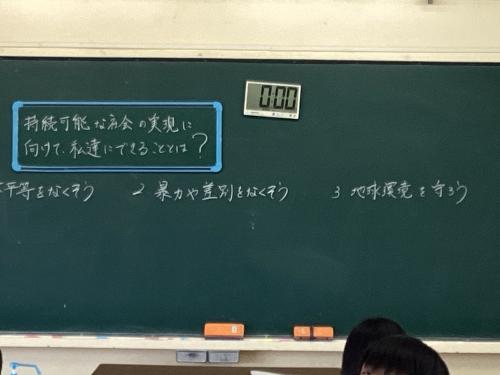 持続可能な社会の実現に
向けて、私達にできることとは?
0:00
平等をなくそう 2 暴力や差別をなくそう 3 地球環境を守ろう